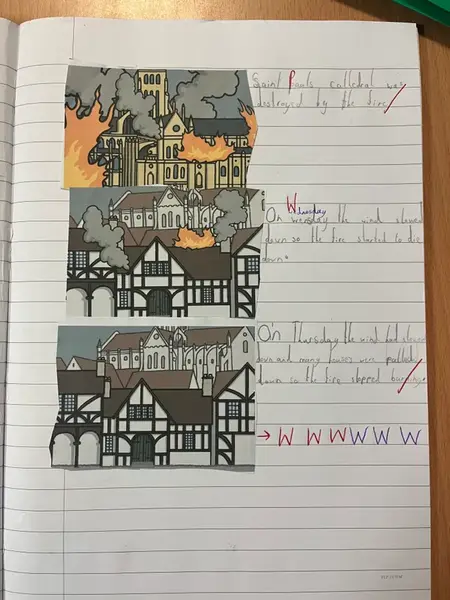 Saint Pauls catledral was
destroyed by the fire
Wednesday
On wensday the wind slowed
down so the fire started to die
down.
On Thursday the wind had slowed
down and many houses were pulled
down so the fire stopped burning
→ W W W W W W